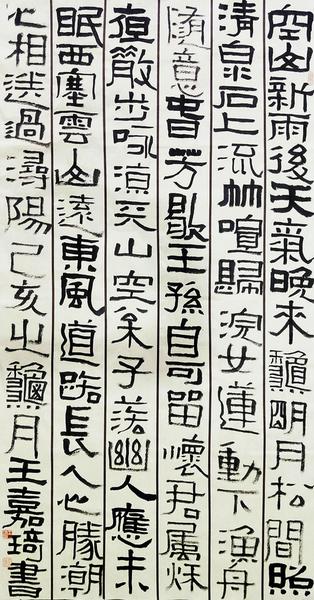 空山新雨後天氣晚來龝明月松間照
清泉石上流竹喧歸浣女蓮動下漁舟
隨意春芳歇王孫自可留懷君屬秋
夜散步詠涼天山空松子落幽人應未
眠西塞雲山遠東風道路長人心勝潮
水相送過潯陽己亥之龝月王嘉琦書